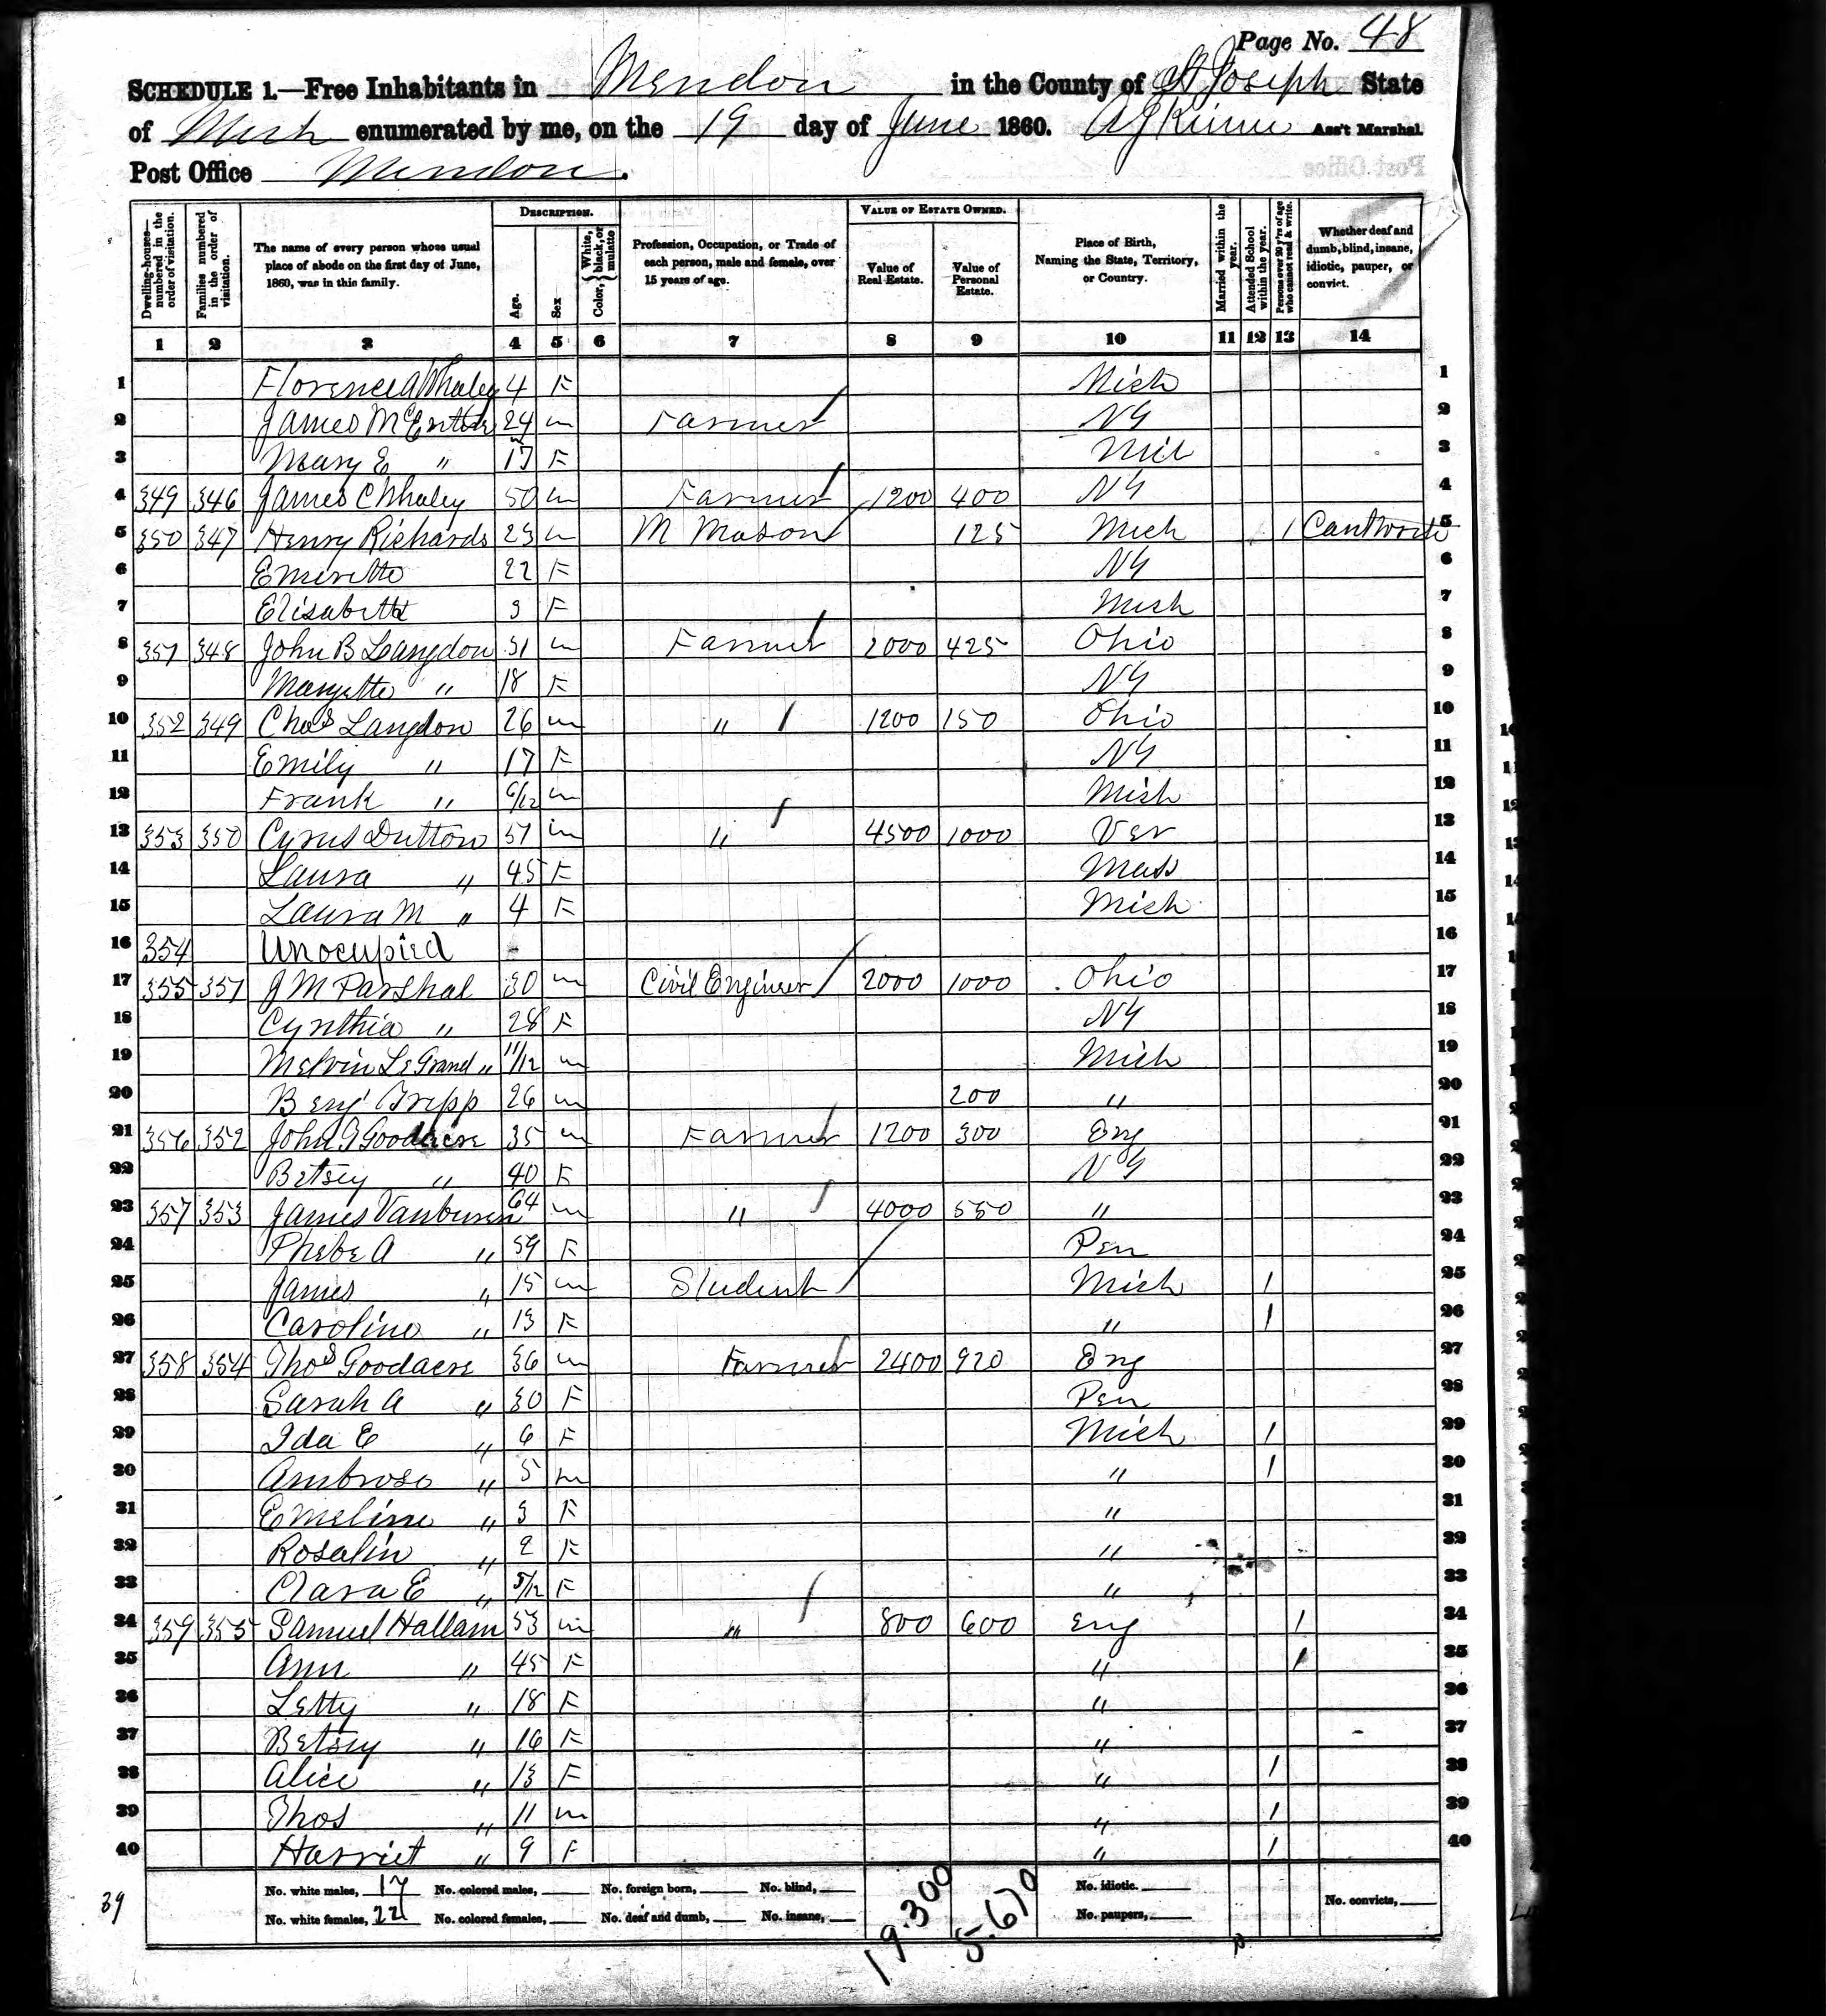 Page No. 48
SCHEDULE 1.—Free Inhabitants in Mendon in the County of St Joseph State
of Mich enumerated by me, on the 19 day of June 1860. Ass't Marshal
Post Office Mendon.
DESCRIPTION. VALUE OF ESTATE OWNED.
Dwelling-houses—numbered in the order of visitation. Families numbered in the order of visitation. The name of every person whose usual place of abode on the first day of June, 1860, was in this family. Age. Sex Color, White, black, or mulatto Profession, Occupation, or Trade of each person, male and female, over 15 years of age. Value of Real Estate. Value of Personal Estate. Place of Birth, Naming the State, Territory, or Country. Married within the year. Attended School within the year. Persons over 20 y'rs of age who cannot read & write. Whether deaf and dumb, blind, insane, idiotic, pauper, or convict.
1 2 3 4 5 6 7 8 9 10 11 12 13 14
1 Florence A Whaley 4 F Mich 1
2 James 24 m Farmer NY 2
3 Mary E " 17 F Mich 3
4 349 346 James C Whaley 50 m Farmer 1200 400 NY 4
5 350 347 Henry Richards 23 m M Mason 125 Mich 1 Cant write 5
6 22 F NY 6
7 Elisabeth 3 F Mich 7
8 351 348 John B Langdon 31 m Farmer 2000 425 Ohio 8
9 Maryette " 18 F NY 9
10 352 349 Chas Langdon 26 m " / 1200 150 Ohio 10
11 Emily " 17 F NY 11
12 Frank " 6/12 m Mich 12
13 353 350 Cyrus Dutton 51 m " / 4500 1000 Ver 13
14 Laura " 45 F Mass 14
15 Laura M " 4 F Mich 15
16 354 Unocupied 16
17 355 351 J M Parshal 30 m Civil Engineer 2000 1000 Ohio 17
18 Cynthia " 28 F NY 18
19 Melvin LeGrand " 11/12 m Mich 19
20 Benj Tripp 26 m 200 " 20
21 356 352 John G Goodacre 35 m Farmer 1200 300 Eng 21
22 Betsey " 40 F NY 22
23 357 353 James Vanburen 64 m " / 4000 550 " 23
24 Phebe A " 59 F Pen 24
25 James " 15 m Student Mich 1 25
26 Caroline " 13 F " 1 26
27 358 354 Thos Goodacre 36 m Farmer 2400 920 Eng 27
28 Sarah A " 30 F Pen 28
29 Ida E " 6 F Mich 1 29
30 Ambrose " 5 m " 1 30
31 Emeline " 3 F " 31
32 Rosalin " 2 F " 32
33 Clara E " 5/12 F " 33
34 359 355 Samuel Hallam 53 m " / 800 600 Eng 1 34
35 Ann " 45 F " 1 35
36 Letty " 18 F " 36
37 Betsey " 16 F " 37
38 Alice " 13 F " 1 38
39 Thos " 11 m " 1 39
40 Harriet " 9 F " 1 40
39 No. white males, 17 No. colored males, No. foreign born, No. blind, 19.300 5.670 No. idiotic. No. convicts,
No. white females, 22 No. colored females, No. deaf and dumb, No. insane, No. paupers,